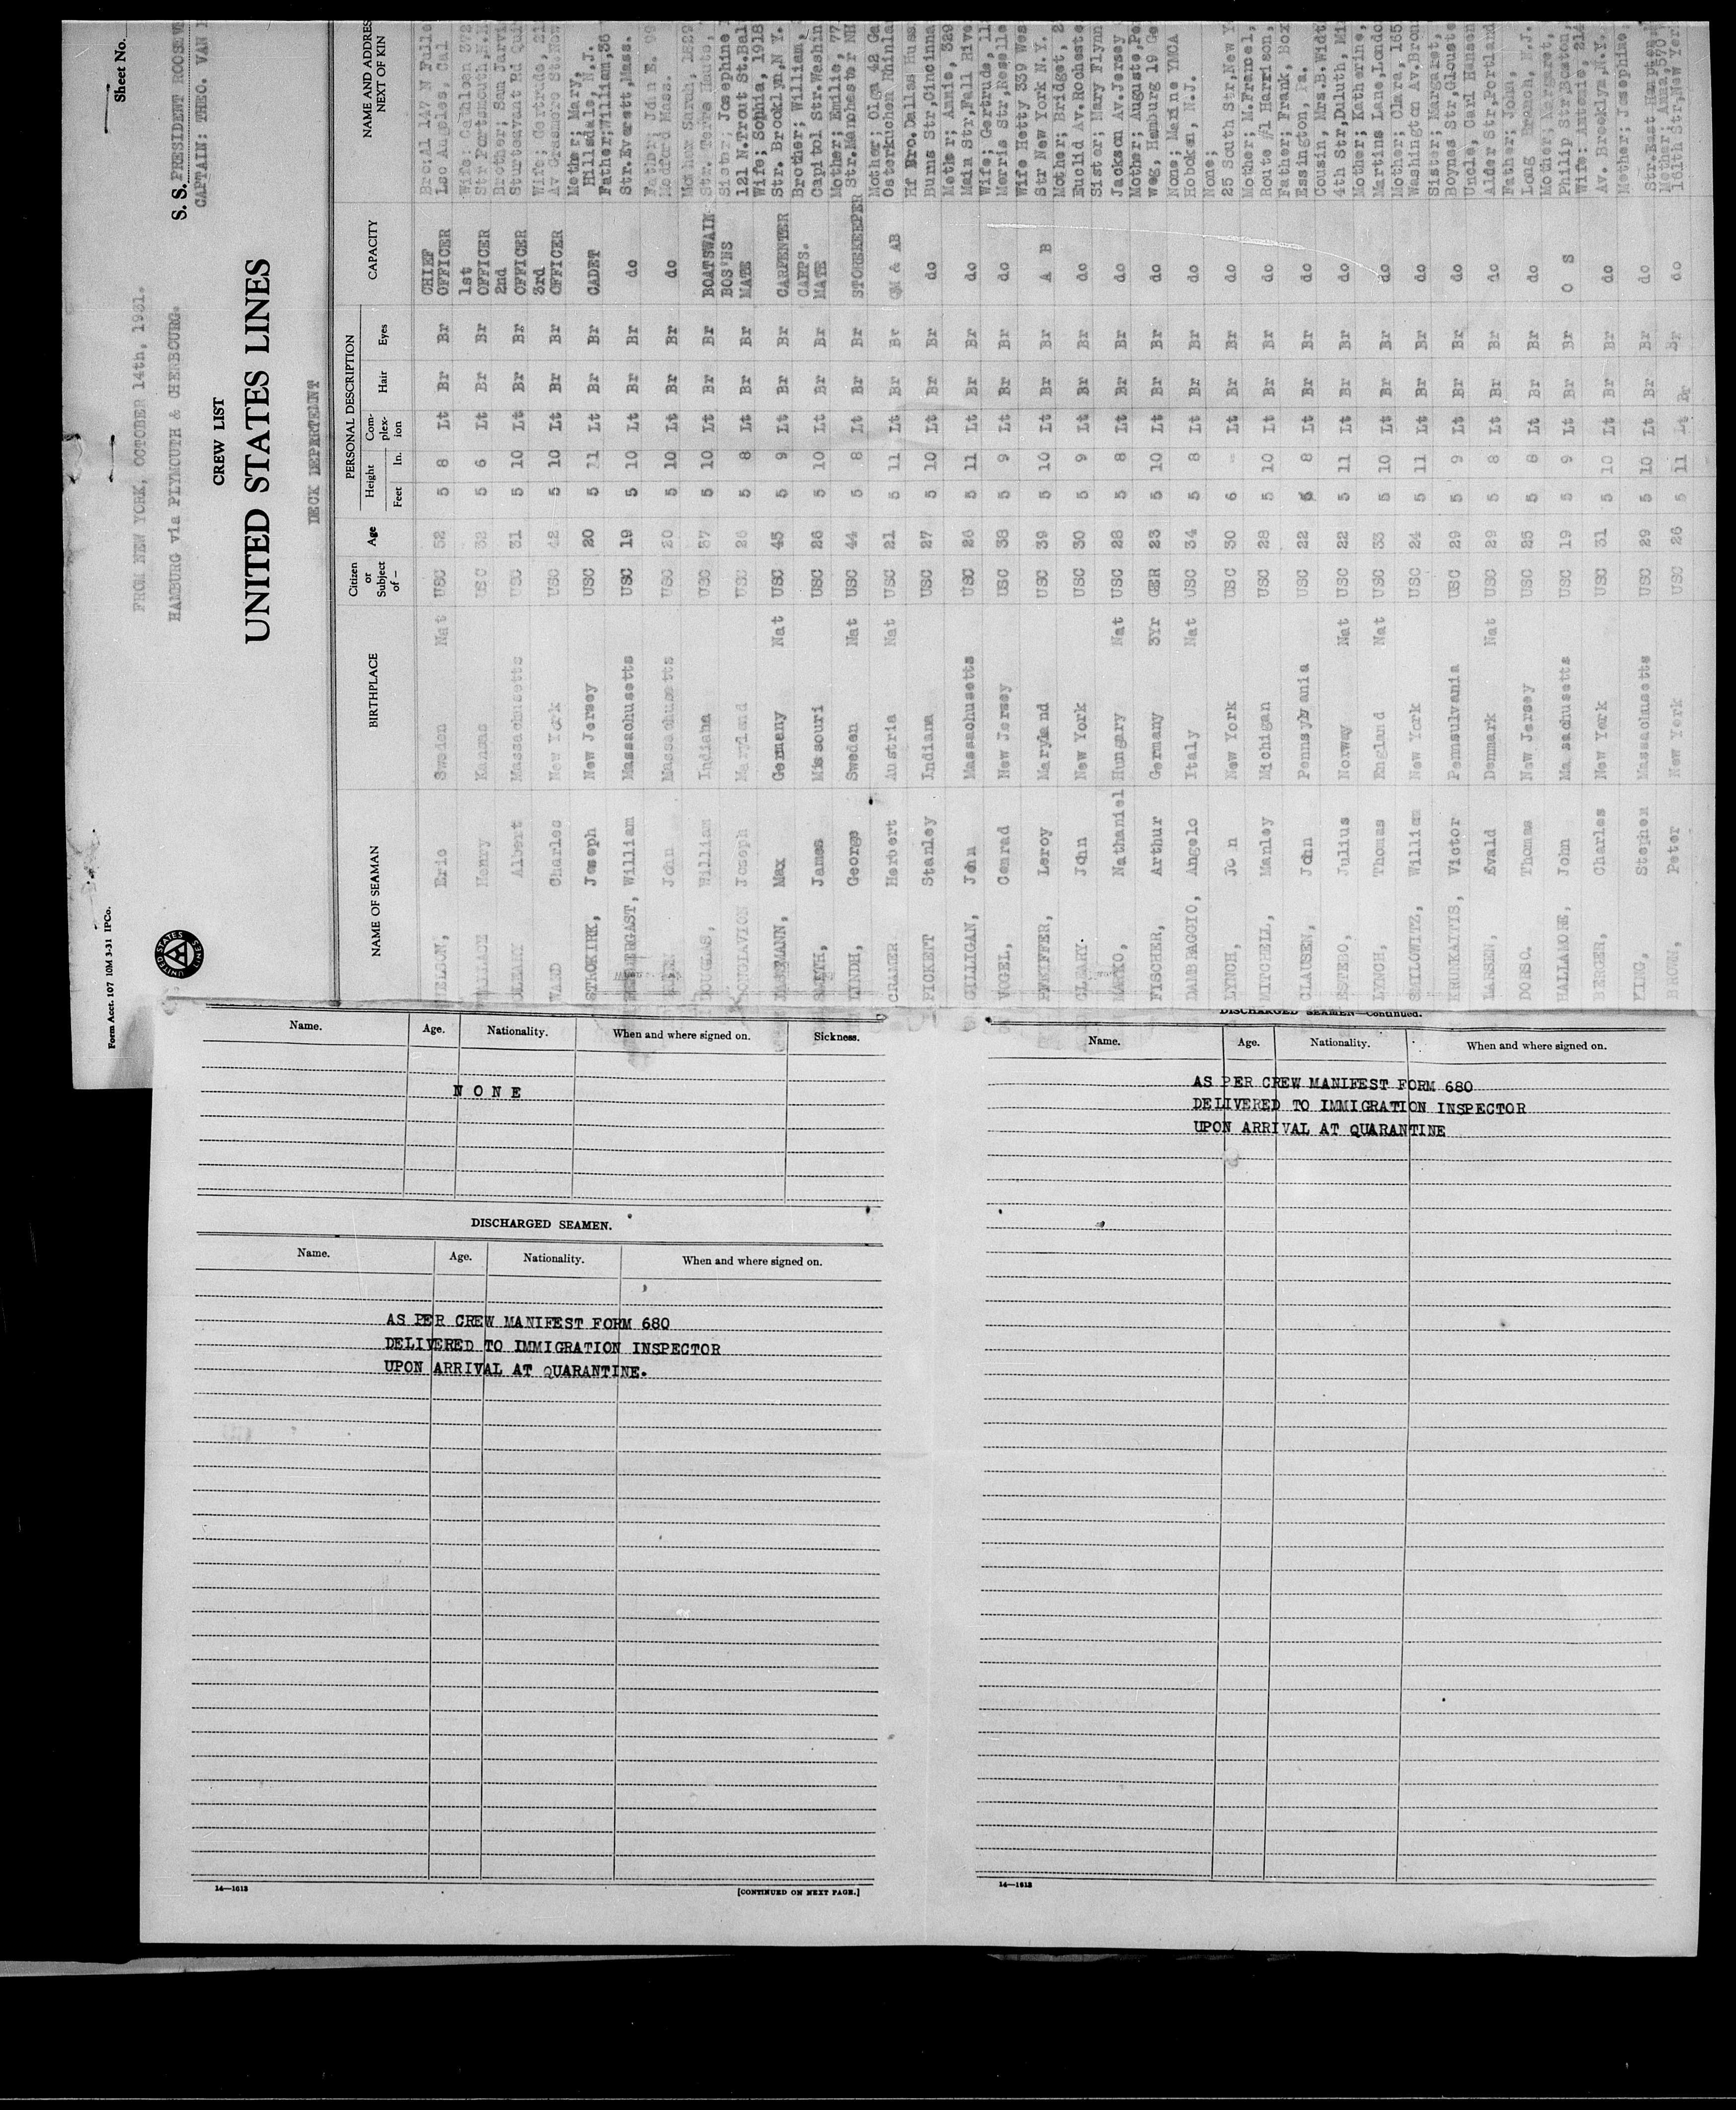 Sheet No.
S. S. PRESIDENT ROOSEV
CAPTAIN: THEO. VAN
FROM NEW YORK, OCTOBER 14th, 1931.
HAMBURG via PLYMOUTH & CHERBOURG.
CREW LIST
UNITED STATES LINES
DECK DEPERTMENT
Form Acct. 107 10M 3-31 IPCo.
UNITED STATES LINES
NAME OF SEAMAN BIRTHPLACE Citizen or Subject of— Age PERSONAL DESCRIPTION Height Feet In. Complexion Hair Eyes CAPACITY NAME AND ADDRES NEXT OF KIN
Eric Sweden Nat USC 52 5 8 Lt Br Br CHIEF OFFICER Bro:Al 147 N Fulle Los Angeles, Cal
Henry Kansas USC 32 5 6 Lt Br Br 1st OFFICER Wife: Cathleen 372 Str Portsmouth,
OLEARY Albert Massachusetts USC 31 5 10 Lt Br Br 2nd OFFICER Brother; Sam Jarvi Sturtecavant Rd Qui
WARD Charles New York USC 42 5 10 Lt Br Br 3rd OFFICER Wife; Gertrude, 21 Av Grasmere St.New
STROKIRK, Joseph New Jersey USC 20 5 11 Lt Br Br CADET Mother; Mary, Hillsdale, N.J.
William Massachusetts USC 19 5 10 Lt Br Br do Father;William,36 Str.Everett,Mass.
John Massachusetts USC 20 5 10 Lt Br Br do Father; John E. 99 Medford Mass.
DOUGLAS, William Indiana USC 37 5 10 Lt Br Br BOATSWAIN Mother Sarah, 1829 Str. Terre Haute,
Joseph Maryland USC 26 5 8 Lt Br Br BOS'NS MATE Sister; Josephine 121 N.Trout St.Bal
Max Germany Nat USC 45 5 9 Lt Br Br CARPENTER Wife; Sophia, 1918 Str. Brooklyn,N Y.
SMITH, James Missouri USC 26 5 10 Lt Br Br CARPS. MATE Brother; William, Capitol Str.Washin
LINDH, George Sweden Nat USC 44 5 8 Lt Br Br STOREKEEPER Mother; Emilie, 77 Str.Manchaster NH
CRAMER Herbert Austria Nat USC 21 5 11 Lt Br Br QM & AB Mother; Olga 42 Ga Osterkuchen Rhinlan
PICKETT Stanley Indiana USC 27 5 10 Lt Br Br do Hf Bro.Dallas Huss Burns Str,Cincinna
GILLIGAN, John Massachusetts USC 26 5 11 Lt Br Br do Mother; Annie, 329 Main Str,Fall Rive
VOGEL, Conrad New Jersey USC 38 5 9 Lt Br Br do Wife; Gertrude, 11 Morris Str,Roselle
PFEIFFER, Leroy Maryland USC 39 5 10 Lt Br Br A B Wife Hetty 339 Wes Str New York N.Y.
CLEARY. John New York USC 30 5 9 Lt Br Br do Mother; Bridget, 2 Euclid Av.Rocheste
MATKO, Nathaniel Hungary Nat USC 28 5 8 Lt Br Br do Sister; Mary Flynn Jackson Av.Jersey
FISCHER, Arthur Germany 3Yr GER 23 5 10 Lt Br Br do Mother; Auguste,Pe weg, Hamburg 19 Ge
DAMBRAGGIO, Angelo Italy Nat USC 34 5 8 Lt Br Br do None; Marine YMCA Hoboken, N.J.
LYNCH, Jo n New York USC 30 6 - Lt Br Br do None; 25 South Str,New Y
MITCHELL, Manley Michigan USC 28 5 10 Lt Br Br do Mother; M.Francel, Route #1 Harrison,
CLAUSEN, John Pennsylvania USC 22 5 8 Lt Br Br do Father; Frank, Box Essington, Pa.
ESTEBO, Julius Norway Nat USC 22 5 11 Lt Br Br do Cousin, Mrs.B.Widt 4th Str,Duluth, Mi
LYNCH, Thomas England Nat USC 33 5 10 Lt Br Br do Mother; Katherine, Martins Lane,Londo
SMILOWITZ, William New York USC 24 5 11 Lt Br Br do Mother; Clara, 155 Washington Av.Bron
KRUNKAITIS, Victor Pennsulvania USC 29 5 9 Lt Br Br do Sister; Margaret, Boynes Str,Glouste
LARSEN, Evald Denmark Nat USC 29 5 8 Lt Br Br do Uncle, Carl Hansen Alder Str,Portland
DORSO. Thomas New Jersey USC 25 5 8 Lt Br Br do Father; John, Long Branch, N.J.
HALLAMORE, John Massachusetts USC 19 5 9 Lt Br Br O S Mother; Margaret, Philip Str,Boston,
BERGER, Charles New York USC 31 5 10 Lt Br Br do Wife: Antonie, 214 Av. Brooklyn,N.Y.
KING, Stephen Massachusetts USC 29 5 10 Lt Br Br do Mother; Josephine, Str.East Hampton
BROWN, Peter New York USC 26 5 11 Lt Br Br do Mother; Anna,570 181th Str,New York
Name. Age. Nationality. When and where signed on. Sickness.
NONE
DISCHARGED SEAMEN.
Name. Age. Nationality. When and where signed on.
AS PER CREW MANIFEST FORM 680
DELIVERED TO IMMIGRATION INSPECTOR
UPON ARRIVAL AT QUARANTINE.
14—1613
[CONTINUED ON NEXT PAGE.]
DISCHARGED SEAMEN—Continued.
Name. Age. Nationality. When and where signed on.
AS PER CREW MANIFEST FORM 680
DELIVERED TO IMMIGRATION INSPECTOR
UPON ARRIVAL AT QUARANTINE
14—1613